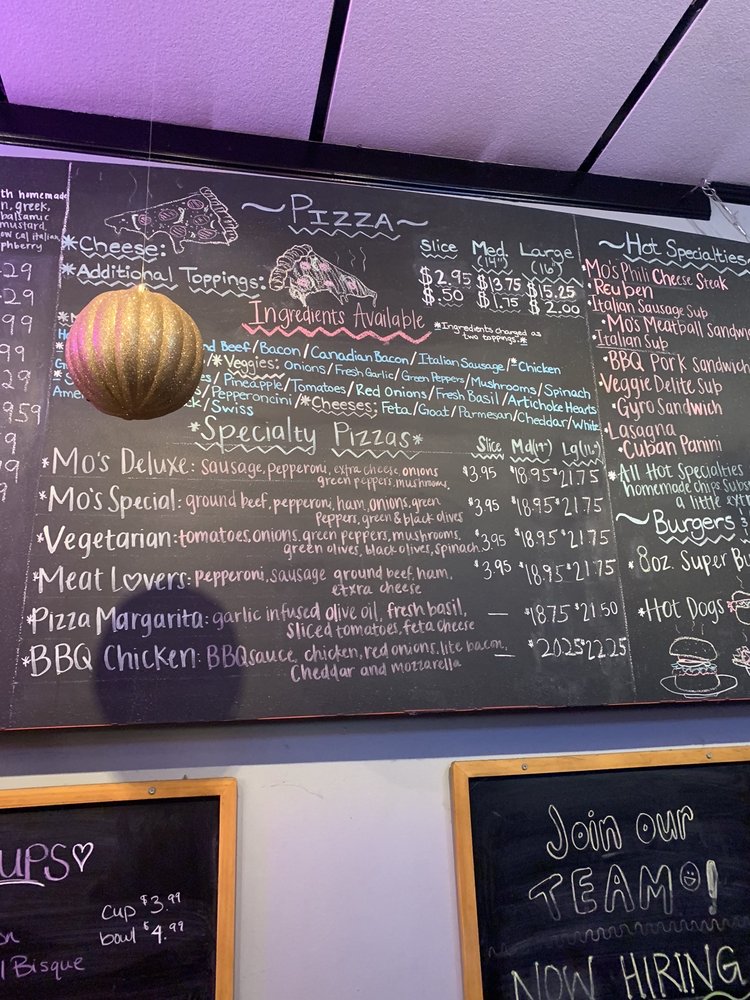 th homemade
n, greek,
balsamic
mustard,
ow cal italian
phberry
-29
-29
99
99
29
959
9
9
~Pizza~
Slice Med. Large
(14") (16")
*Cheese: $2.95 $13.75 $15.25
*Additional Toppings: $.50 $1.75 $2.00
Ingredients Available
*Ingredients charged as
two toppings*
nd Beef/Bacon/Canadian Bacon/Italian Sausage/*Chicken
*Veggies: Onions/Fresh Garlic/Green Peppers/Mushrooms/Spinach
/Pineapple/Tomatoes/Red Onions/Fresh Basil/Artichoke Hearts
Pepperoncini/*Cheeses: Feta/Goat/Parmesan/Cheddar/White
Ame
ck/Swiss
*Specialty Pizzas*
Slice Md(14") Lg(16")
*Mo's Deluxe: sausage, pepperoni, extra cheese, onions $3.95 $18.95 $21.75
green peppers, mushrooms
*Mo's Special: ground beef, pepperoni, ham, onions, green $3.95 $18.95 $21.75
Peppers, green & black olives
*Vegetarian: tomatoes, onions, green peppers, mushrooms, $3.95 $18.95 $21.75
green olives, black olives, spinach
*Meat Lovers: pepperoni, sausage ground beef, ham, $3.95 $18.95 $21.75
etxra cheese
*Pizza Margarita: garlic infused olive oil, fresh basil, — $18.75 $21.50
sliced tomatoes, feta cheese
*BBQ Chicken: BBQ sauce, chicken, red onions, lite bacon, — $20.25 $22.25
Cheddar and mozzarella
~Hot Specialties
*Mo's Phili Cheese Steak
*Reuben
*Italian Sausage Sub
*Mo's Meatball Sandwi
*Italian Sub
*BBQ Pork Sandwich
*Veggie Delite Sub
*Gyro Sandwich
*Lasagna
*Cuban Panini
*All Hot Specialties
homemade chips Subs
a little ext
~Burgers
*8oz. Super Bu
*Hot Dogs
UPS♡
Cup $3.99
bowl $4.99
on
l Bisque
Join our
TEAM☺!
NOW HIRING